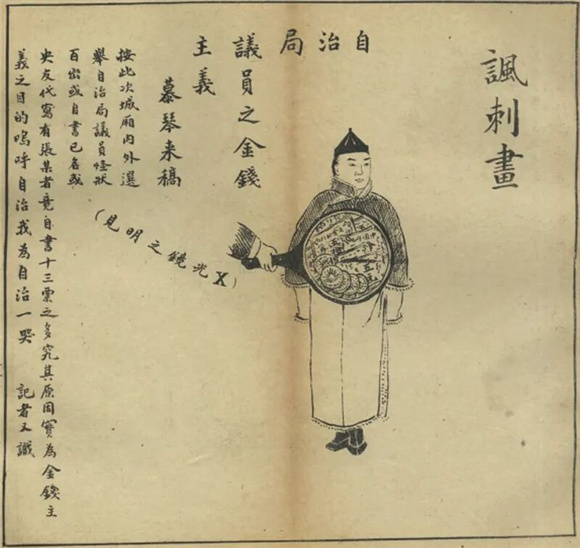 諷刺畫
自治局
議員之金錢
主義
慕琴来稿
(X光鏡之明見)
按此次城廂內外選
舉自治局議員怪狀
百出或自書已名或
央友代寫有張某者竟自書十三票之多究其原因實為金錢主
義之目的嗚呼自治我為自治一哭 記者又識